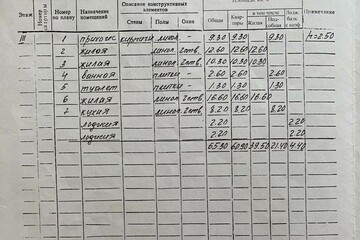 Этаж Номер квартиры Номер по плану Назначение помещений Описание конструктивных элементов в том числе Примечание
Стены Полы Окна Общая Квартиры Жилая Подсобная
III 1 прихож кирпичн линол - 9.30 9.30 9.30 h=2.50
2 жилая линол 2ств. 12.60 12.60 12.60
3 жилая линол 2ств. 10.30 10.30 10.30
4 ванная плитки - 2.60 2.60 2.60
5 туалет плитки - 1.30 1.30 1.30
6 жилая линол 2ств. 16.60 16.60 16.60
7 кухня линол 2ств. 8.20 8.20 8.20
лоджия 2.20 2.20
лоджия 2.20 2.20
65.30 60.90 39.50 21.40 4.40